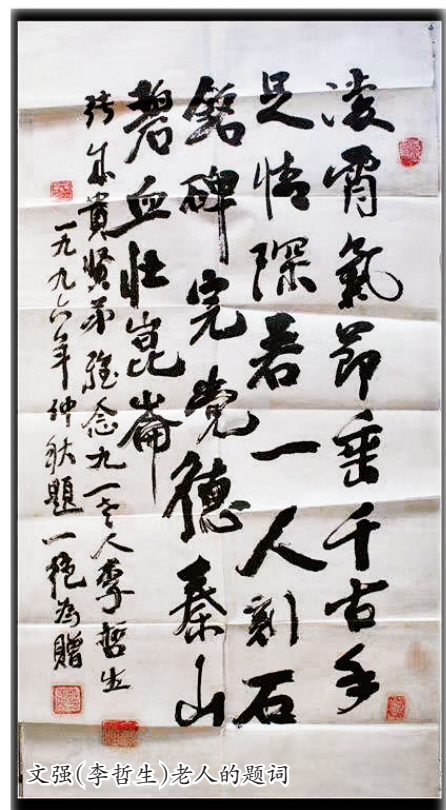 凌霄氣節垂千古手
足情深若一人刻石
銘碑完党德泰山
碧血壮崑崙
張成貴賢弟雅念九一老人李哲生
一九九六年仲秋題一絕為贈
文强(李哲生)老人的题词